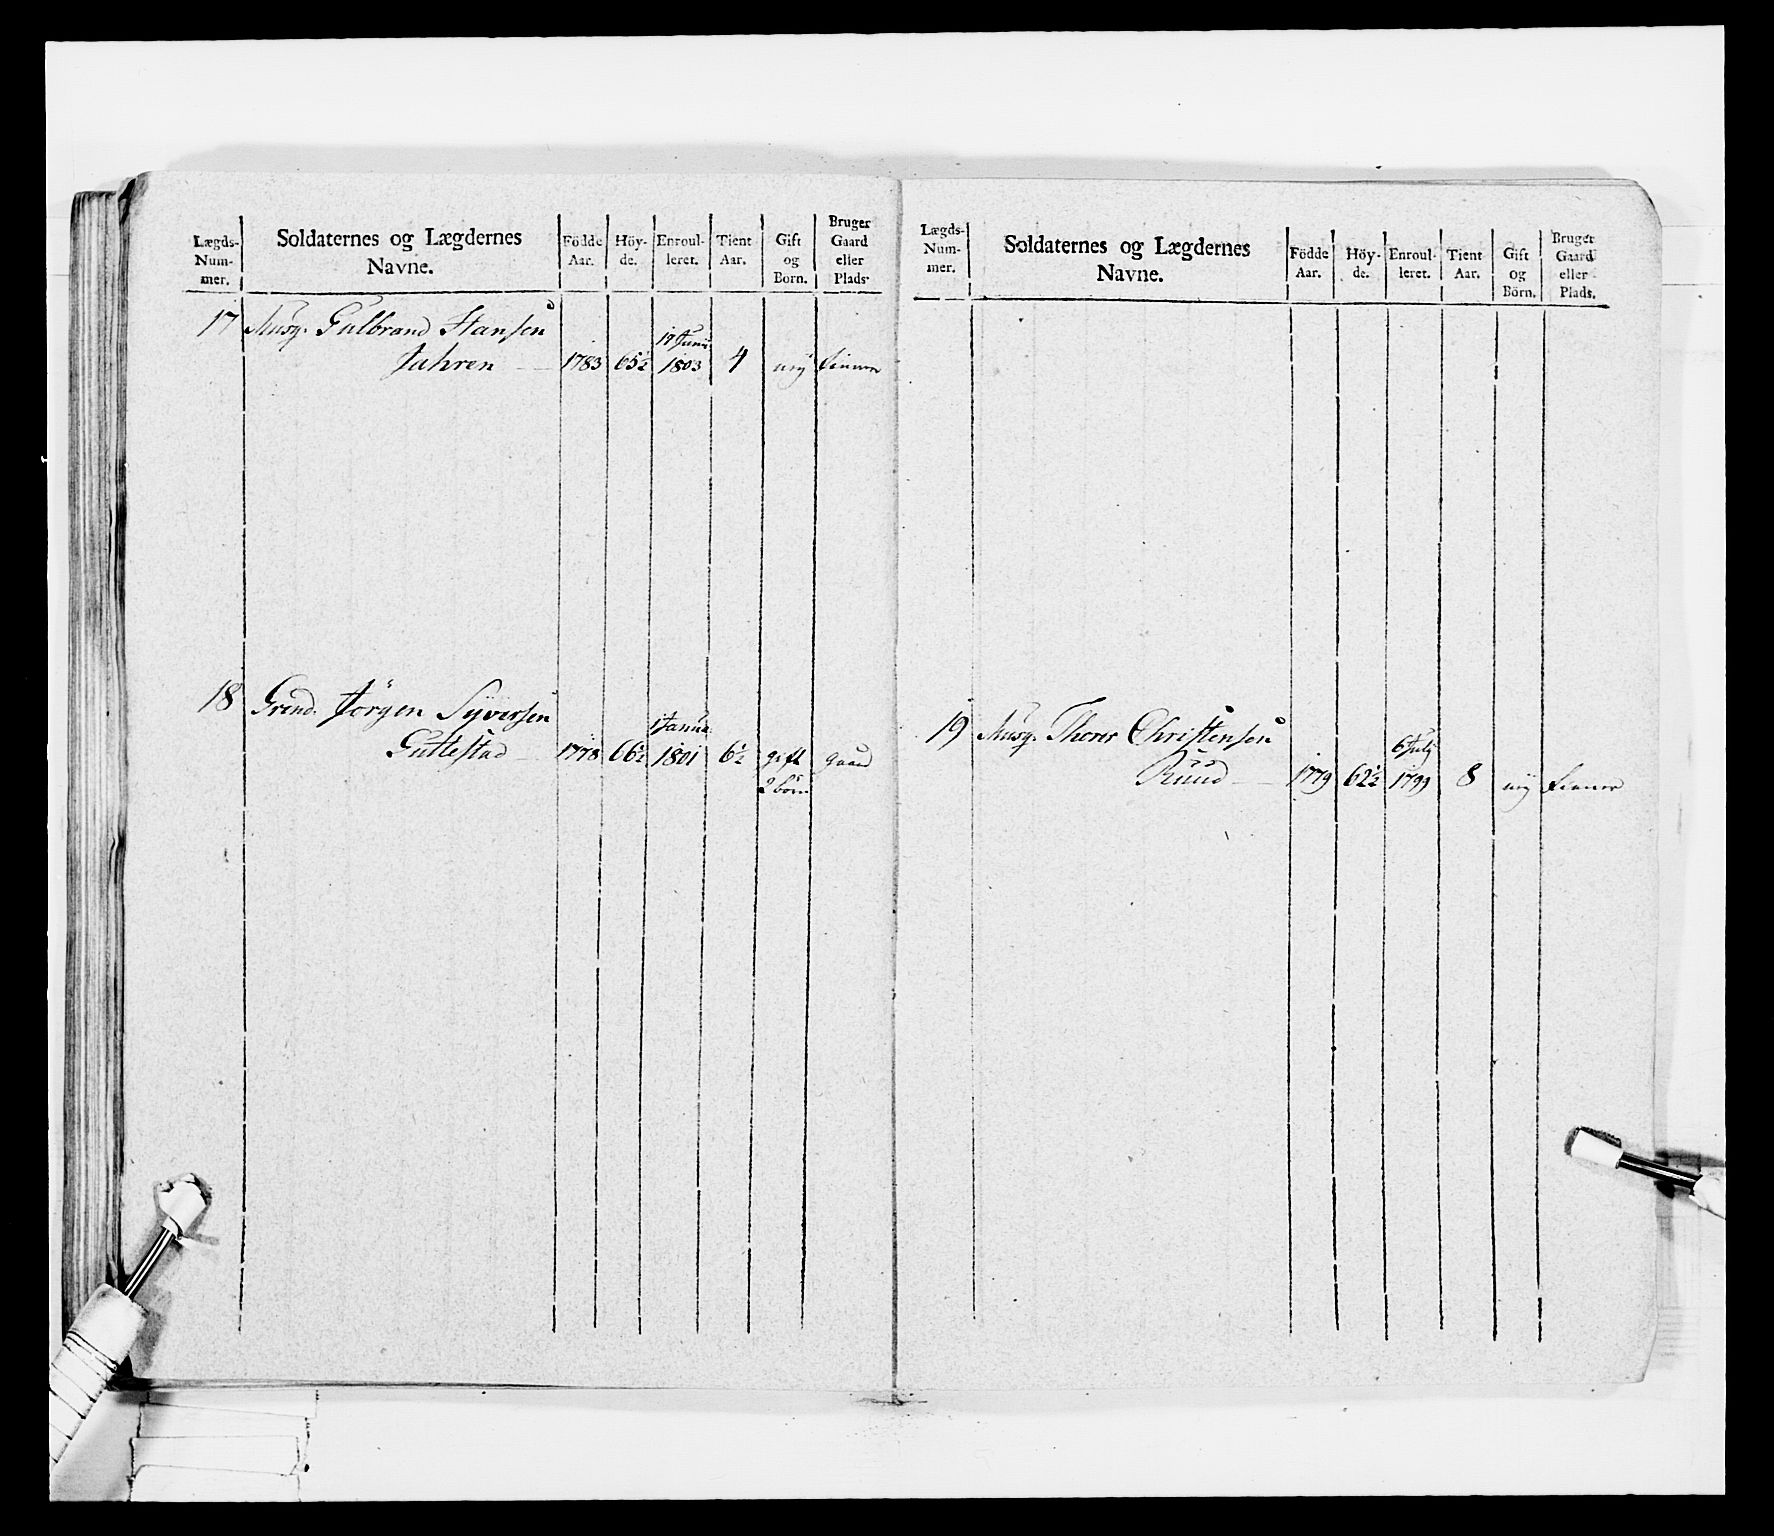 Lægds-
Num-
mer.
Soldaternes og Lægdernes
Navne.
Födde
Aar.
Höy-
de.
Enroul-
leret.
Tient
Aar.
Gift
og
Börn.
Bruger
Gaard
eller
Plads.
17 Musq. Gulbrand Hansen
Jahren 1783 65½ 1803 4
18 Grend. Jörgen Syversen
Guttestad 1778 66½ 1 Janua 1801 6½ gift gaard
2 börn
Lægds-
Num-
mer.
Soldaternes og Lægdernes
Navne.
Födde
Aar.
Höy-
de.
Enroul-
leret.
Tient
Aar.
Gift
og
Börn.
Bruger
Gaard
eller
Plads.
19 Musq. Thorer Christensen
Ruud 1779 62½ 6 July 1799 8